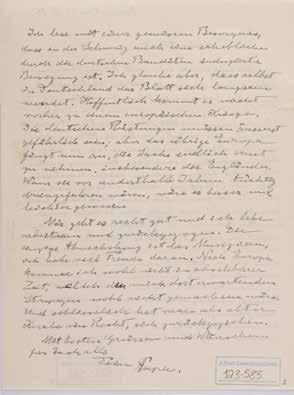 Ich lese mit einer gewissen Besorgnis,
dass in der Schweiz auch eine erhebliche
durch die deutschen Banditen
Bewegung ist. Ich glaube aber, dass selbst
in Deutschland das Blatt sich langsam
wendet. Hoffentlich kommt es nicht
vorher zu einem europäischen Kriege.
Die deutschen Rüstungen müssen äusserst
gefährlich sein; aber das übrige Europa
fängt nun an, die Sache endlich ernst
zu nehmen, insbesondere die Engländer.
Wenn sie vor anderthalb Jahren tüchtig
zugegriffen wären, wäre es besser und
leichter gewesen
Mir geht es recht gut und ich lebe
arbeitsam und zurückgezogen. Die
einzige Abwechslung ist das Musizieren,
ich habe viel Freude daran. Nach Europa
komme ich wohl nicht in absehbarer
Zeit, weil ich den mich dort erwartenden
Strapazen wohl nicht gewachsen wäre.
Und schliesslich hat man als alter
Knabe ein Recht, sich zurückzuziehen.
Mit besten Grüssen und Wünschen
für Euch alle
Dein Papa.
123-585